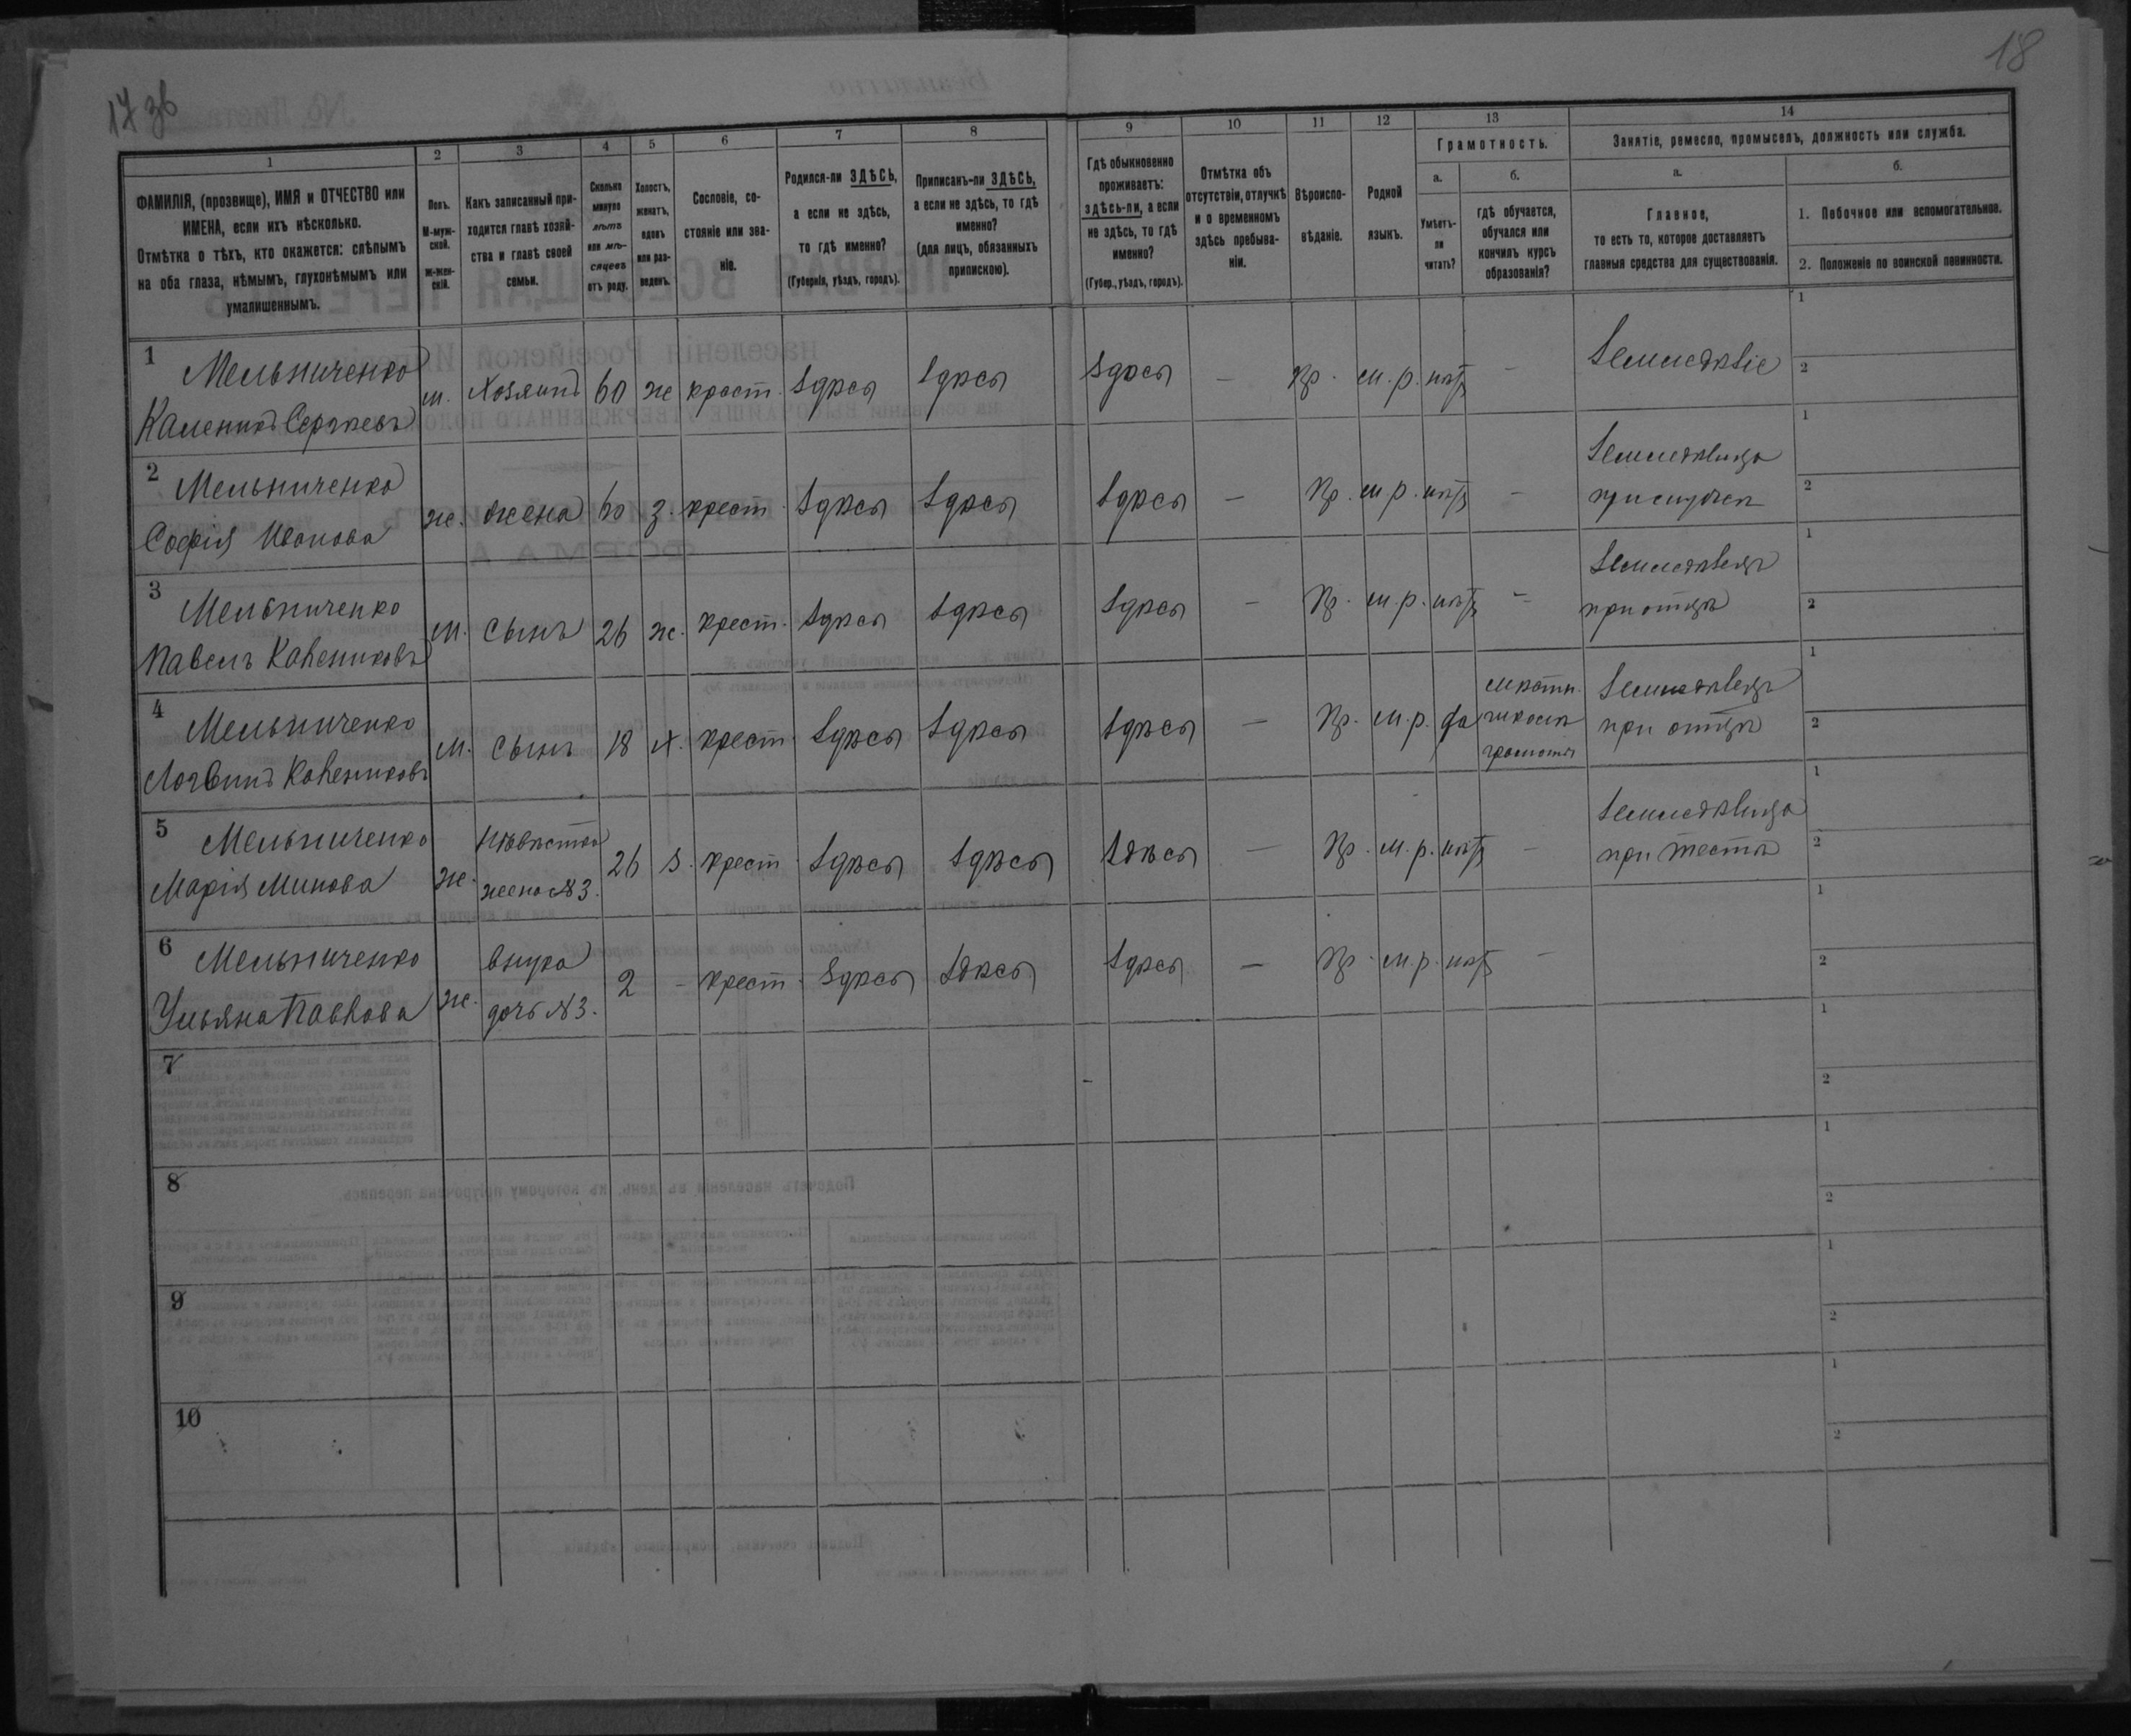 17 зв
18
1
2
3
4
5
6
7
8
9
10
11
12
13
14
ФАМИЛІЯ, (прозвище), ИМЯ и ОТЧЕСТВО или
ИМЕНА, если ихъ нѣсколько.
Отмѣтка о тѣхъ, кто окажется: слѣпымъ
на оба глаза, нѣмымъ, глухонѣмымъ или
умалишеннымъ.
Полъ.
М-муж-
ской.
ж-жен-
скій.
Какъ записанный при-
ходится главѣ хозяй-
ства и главѣ своей
семьи.
Сколько
минуло
лѣтъ
или мѣ-
сяцевъ
отъ роду.
Холостъ,
женатъ,
вдовъ
или раз-
веденъ.
Сословіе, со-
стояніе или зва-
ніе.
Родился-ли ЗДѢСЬ,
а если не здѣсь,
то гдѣ именно?
(Губернія, уѣздъ, городъ).
Приписанъ-ли ЗДѢСЬ,
а если не здѣсь, то гдѣ
именно?
(для лицъ, обязанныхъ
припискою).
Гдѣ обыкновенно
проживаетъ:
здѣсь-ли, а если
не здѣсь, то гдѣ
именно?
(Губер., уѣздъ, городъ).
Отмѣтка объ
отсутствіи, отлучкѣ
и о временномъ
здѣсь пребыва-
ніи.
Вѣроиспо-
вѣданіе.
Родной
языкъ.
Грамотность.
а.
Умѣетъ-
ли
читать?
б.
гдѣ обучается,
обучался или
кончилъ курсъ
образованія?
Занятіе, ремесло, промыселъ, должность или служба.
а.
Главное,
то есть то, которое доставляетъ
главныя средства для существованія.
б.
1. Побочное или вспомогательное.
2. Положеніе по воинской повинности.
1
Мельниченко
Каленикъ Сергѣевъ
м. Хозяинъ 60 ж крест. здѣсь здѣсь здѣсь — Пр. м.р. нѣтъ —
Земледѣліе
1
2
2
Мельниченко
Софія Иванова
ж. жена 60 з. крест. здѣсь здѣсь здѣсь — Пр. м.р. нѣтъ —
Земледѣлица
при мужѣ
1
2
3
Мельниченко
Павелъ Калениковъ
м. сынъ 26 ж. крест. здѣсь здѣсь здѣсь — Пр. м.р. нѣтъ —
Земледѣлецъ
при отцѣ
1
2
4
Мельниченко
Логвинъ Калениковъ
м. сынъ 18 х. крест. здѣсь здѣсь здѣсь — Пр. м.р. да
школѣ
грамоты
Земледѣлецъ
при отцѣ
1
2
5
Мельниченко
Марія Минова
ж.
Невѣстка
жена №3.
26 з. крест. здѣсь здѣсь здѣсь — Пр. м.р. нѣтъ —
Земледѣлица
при тестѣ
1
2
6
Мельниченко
Ульяна Павлова
ж.
внука
дочь №3.
2 — крест. здѣсь здѣсь здѣсь — Пр. м.р. нѣтъ —
1
2
7
1
2
8
1
2
9
1
2
10
1
2